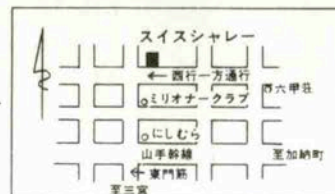 スイスシャレー
←西行一方通行
六甲荘
ミリオナークラブ
にしむら
山手幹線
至加納町
東門筋
至三宮